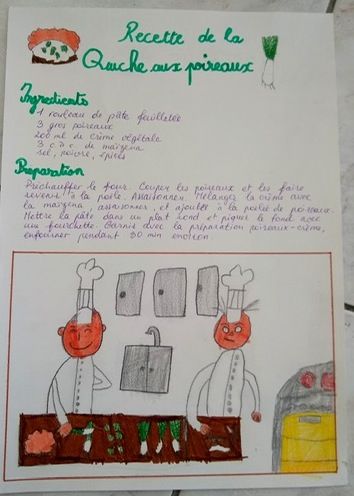 Recette de la
Quiche aux poireaux
Ingredients
1 rouleau de pâte feuilletée
3 gros poireaux
200 ml de crème végétale
3 c à c de maïzena
sel, poivre, épices
Preparation
Préchauffer le four. Couper les poireaux et les faire
revenir à la poêle. Assaisonner. Mélanger la crème avec
la maïzena, assaisonner, et ajouter à la poêlée de poireaux.
Mettre la pâte dans un plat rond et piquer le fond avec
une fourchette. Garnir avec la préparation poireaux-crème,
enfourner pendant 30 min environ